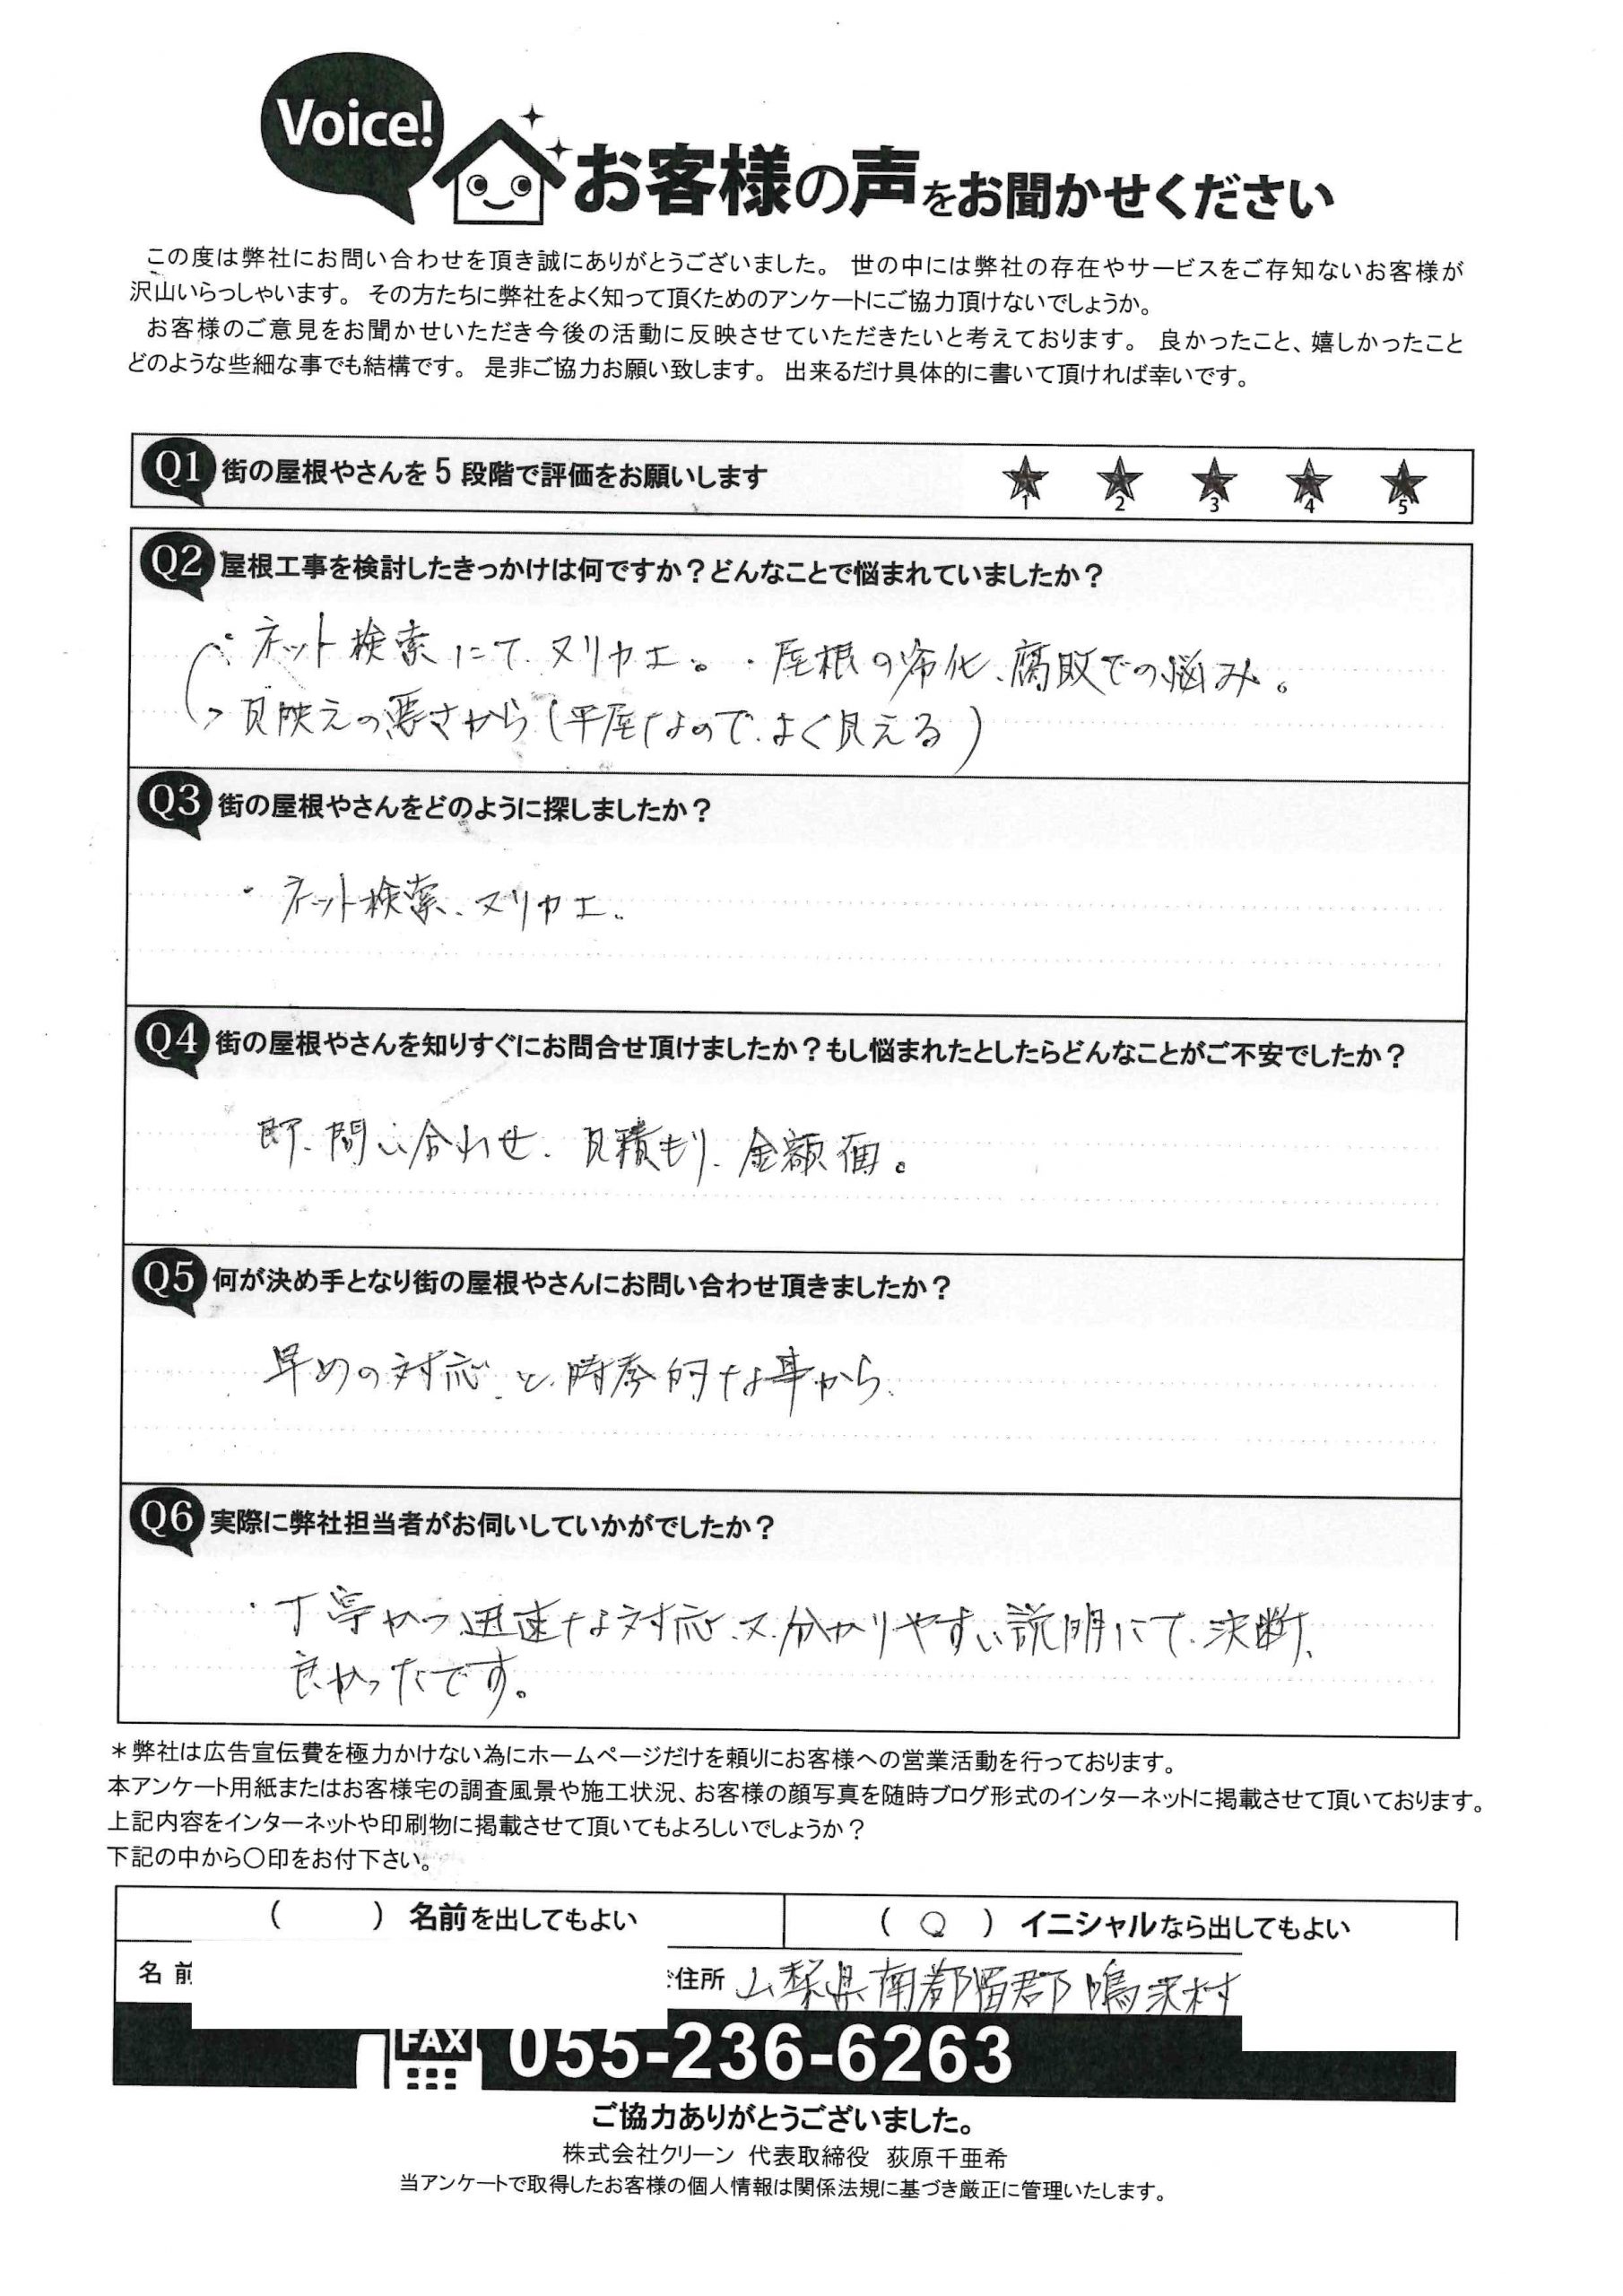 Voice!
お客様の声をお聞かせください
この度は弊社にお問い合わせを頂き誠にありがとうございました。 世の中には弊社の存在やサービスをご存知ないお客様が
沢山いらっしゃいます。 その方たちに弊社をよく知って頂くためのアンケートにご協力頂けないでしょうか。
お客様のご意見をお聞かせいただき今後の活動に反映させていただきたいと考えております。 良かったこと、嬉しかったこと
どのような些細な事でも結構です。 是非ご協力お願い致します。 出来るだけ具体的に書いて頂ければ幸いです。
Q1 街の屋根やさんを5段階で評価をお願いします ★1 ★2 ★3 ★4 ★5
Q2 屋根工事を検討したきっかけは何ですか？どんなことで悩まれていましたか？
・ネット検索にて、ヌリカエ。・屋根の劣化、腐敗での悩み。
→見映えの悪さから(平屋なので、よく見える)
Q3 街の屋根やさんをどのように探しましたか？
・ネット検索、ヌリカエ。
Q4 街の屋根やさんを知りすぐにお問合せ頂けましたか？もし悩まれたとしたらどんなことがご不安でしたか？
即、問い合わせ、見積もり、金額面。
Q5 何が決め手となり街の屋根やさんにお問い合わせ頂きましたか？
早めの対応と、時季的な事から、
Q6 実際に弊社担当者がお伺いしていかがでしたか？
・丁寧かつ迅速な対応、又、分かりやすい説明にて、決断、
良かったです。
＊弊社は広告宣伝費を極力かけない為にホームページだけを頼りにお客様への営業活動を行っております。
本アンケート用紙またはお客様宅の調査風景や施工状況、お客様の顔写真を随時ブログ形式のインターネットに掲載させて頂いております。
上記内容をインターネットや印刷物に掲載させて頂いてもよろしいでしょうか？
下記の中から〇印をお付下さい。
（　　）名前を出してもよい （○）イニシャルなら出してもよい
名前 住所 山梨県南都留郡鳴沢村
FAX 055-236-6263
ご協力ありがとうございました。
株式会社クリーン 代表取締役 荻原千亜希
当アンケートで取得したお客様の個人情報は関係法規に基づき厳正に管理いたします。